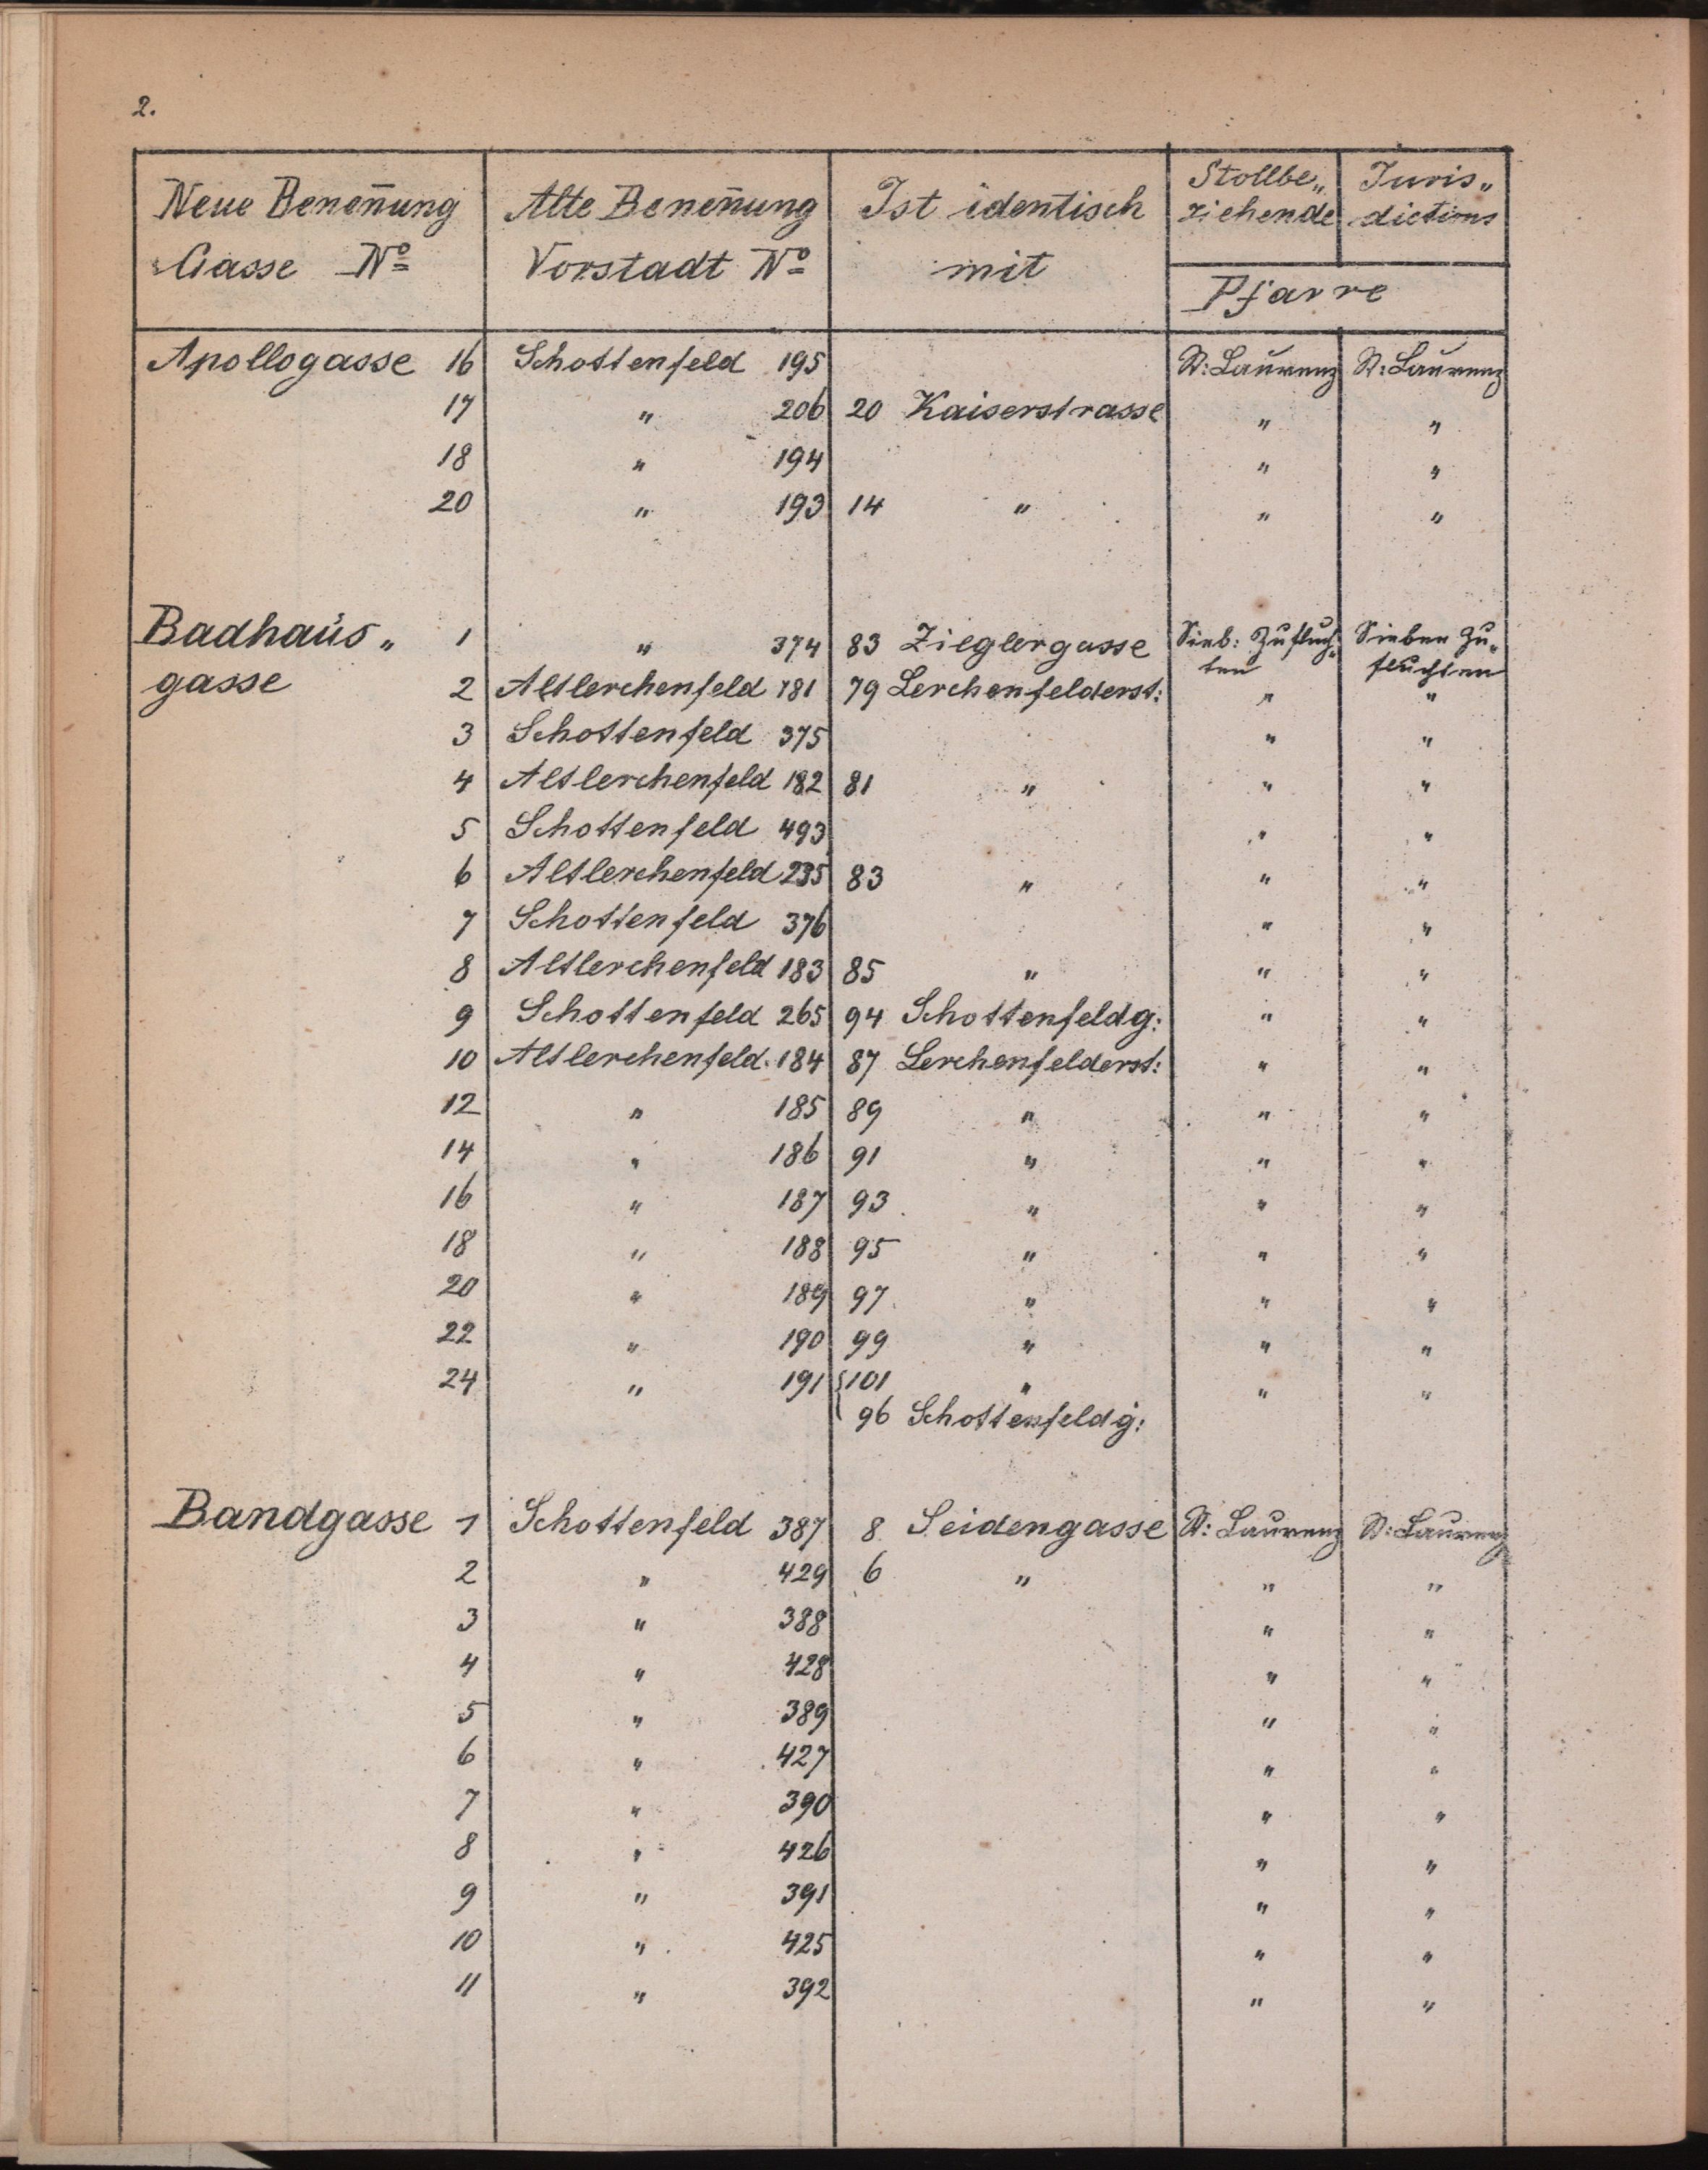 2.
Neue Benen̄ung Alte Benen̄ung Ist identisch Stollbe„ Juris„
Gasse No Vorstadt No mit ziehende dictions
Pfarre
Apollogasse 16 Schottenfeld 195 St: Laurenz St: Laurenz
17 " 206 20 Kaiserstrasse " "
18 " 194 " "
20 " 193 14 " " "
Badhaus„ 1 " 374 83 Zieglergasse Sieb: Zufluch„ Sieben Zu„
gasse ten fluchten
2 Altlerchenfeld 181 79 Lerchenfelderst: " "
3 Schottenfeld 375 " "
4 Altlerchenfeld 182 81 " " "
5 Schottenfeld 493 " "
6 Altlerchenfeld 235 83 " " "
7 Schottenfeld 376 " "
8 Altlerchenfeld 183 85 " " "
9 Schottenfeld 265 94 Schottenfeldg: " "
10 Altlerchenfeld 184 87 Lerchenfelderst: " "
12 " 185 89 " " "
14 " 186 91 " " "
16 " 187 93 " " "
18 " 188 95 " " "
20 " 189 97 " " "
22 " 190 99 " " "
24 " 191 { 101 " " "
96 Schottenfeldg:
Bandgasse 1 Schottenfeld 387 8 Seidengasse St: Laurenz St: Laurenz
2 " 429 6 " " "
3 " 388 " "
4 " 428 " "
5 " 389 " "
6 " 427 " "
7 " 390 " "
8 " 426 " "
9 " 391 " "
10 " 425 " "
11 " 392 " "